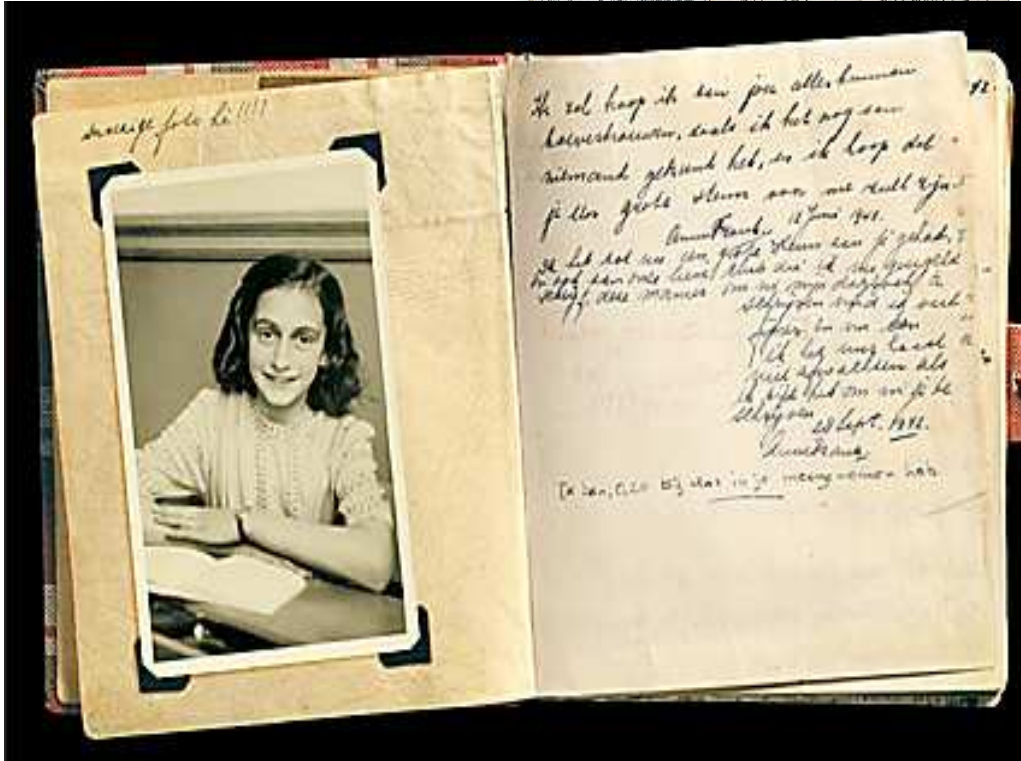 snoezige foto hè!!!!
Ik zal hoop ik aan jou alles kunnen
toevertrouwen, zoals ik het nog aan
niemand gekund heb, en ik hoop dat
je een grote steun voor me zult zijn.
Anne Frank. 12 Juni 1942.
Ik heb tot nu toe een grote steun aan je gehad,
en ook aan onze lieve club die ik nu geregeld
schrijf, deze manier om in mijn dagboek te
schrijven vind ik veel
fijner en nu kan
ik het uur haast
niet afwachten als
ik tijd heb om in je te
schrijven
28 Sept. 1942.
Anne Frank.
Ik ben, o, zo blij dat ik je meegenomen heb